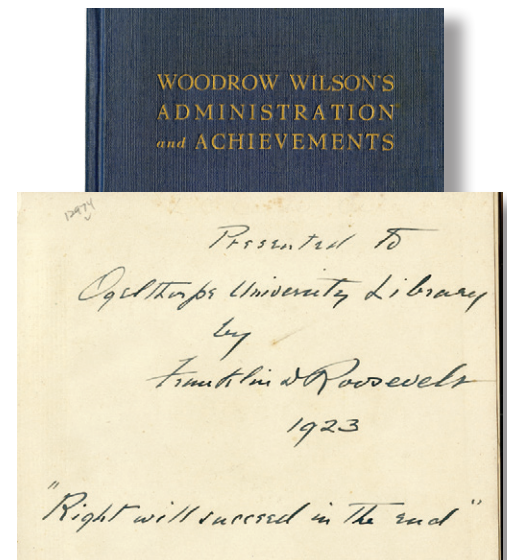 WOODROW WILSON'S
ADMINISTRATION
and ACHIEVEMENTS
12974
Presented to
Ogelthorpe University Library
by
Franklin D Roosevelt
1923
"Right will succeed in the end"